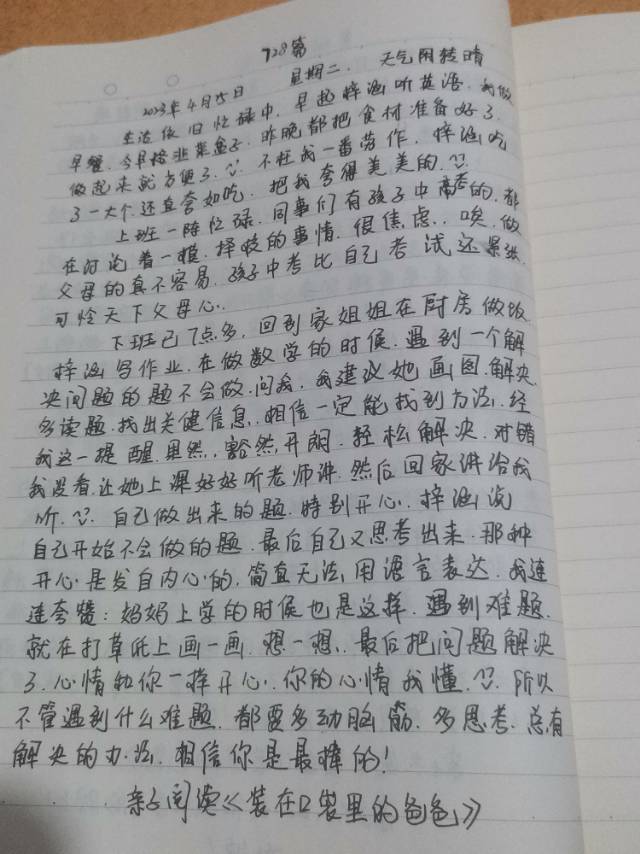 728篇
2023年4月25日 星期二. 天气阴转晴
生活依旧忙碌中, 早起梓涵听英语. 我做
早餐. 今早烙韭菜盒子. 昨晚都把食材准备好了.
做起来就方便了. 不枉我一番劳作. 梓涵吃
了一大个. 还直夸好吃. 把我夸得美美的.
上班一阵忙碌. 同事们有孩子中高考的. 都
在讨论着一模. 择校的事情. 很焦虑.. 唉. 做
父母的真不容易. 孩子中考比自己考试还紧张.
可怜天下父母心.
下班已7点多, 回到家姐姐在厨房做饭
梓涵写作业. 在做数学的时候. 遇到一个解
决问题的题不会做. 问我. 我建议她画图. 解决.
多读题. 找出关健信息. 相信一定能找到方法. 经
我这一提醒. 果然, 豁然开朗. 轻松解决. 对错
我没看. 让她上课好好听老师讲. 然后回家讲给我
听. 自己做出来的题. 特别开心. 梓涵说
自己开始不会做的题. 最后自己又思考出来. 那种
开心是发自内心的. 简直无法用语言表达. 我连
连夸赞: 妈妈上学的时候也是这样. 遇到难题.
就在打草纸上画一画. 想一想. 最后把问题解决
了. 心情和你一样开心. 你的心情我懂. 所以
不管遇到什么难题. 都要多动脑筋. 多思考. 总有
解决的办法. 相信你是最棒的!
亲子阅读《装在口袋里的爸爸》